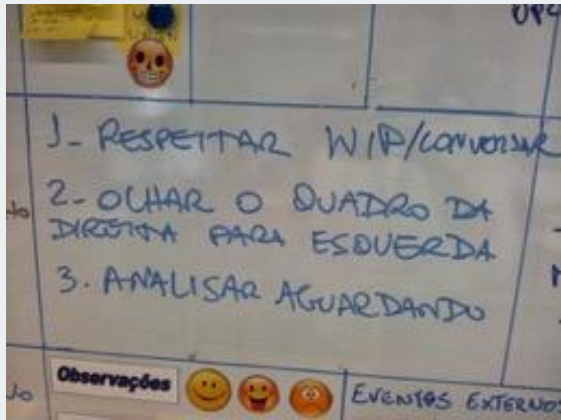 UPS
1- RESPEITAR WIP/CONVERSAR
2- OLHAR O QUADRO DA
DIREITA PARA ESQUERDA
3. ANALISAR AGUARDANDO
Observações
EVENTOS EXTERNOS